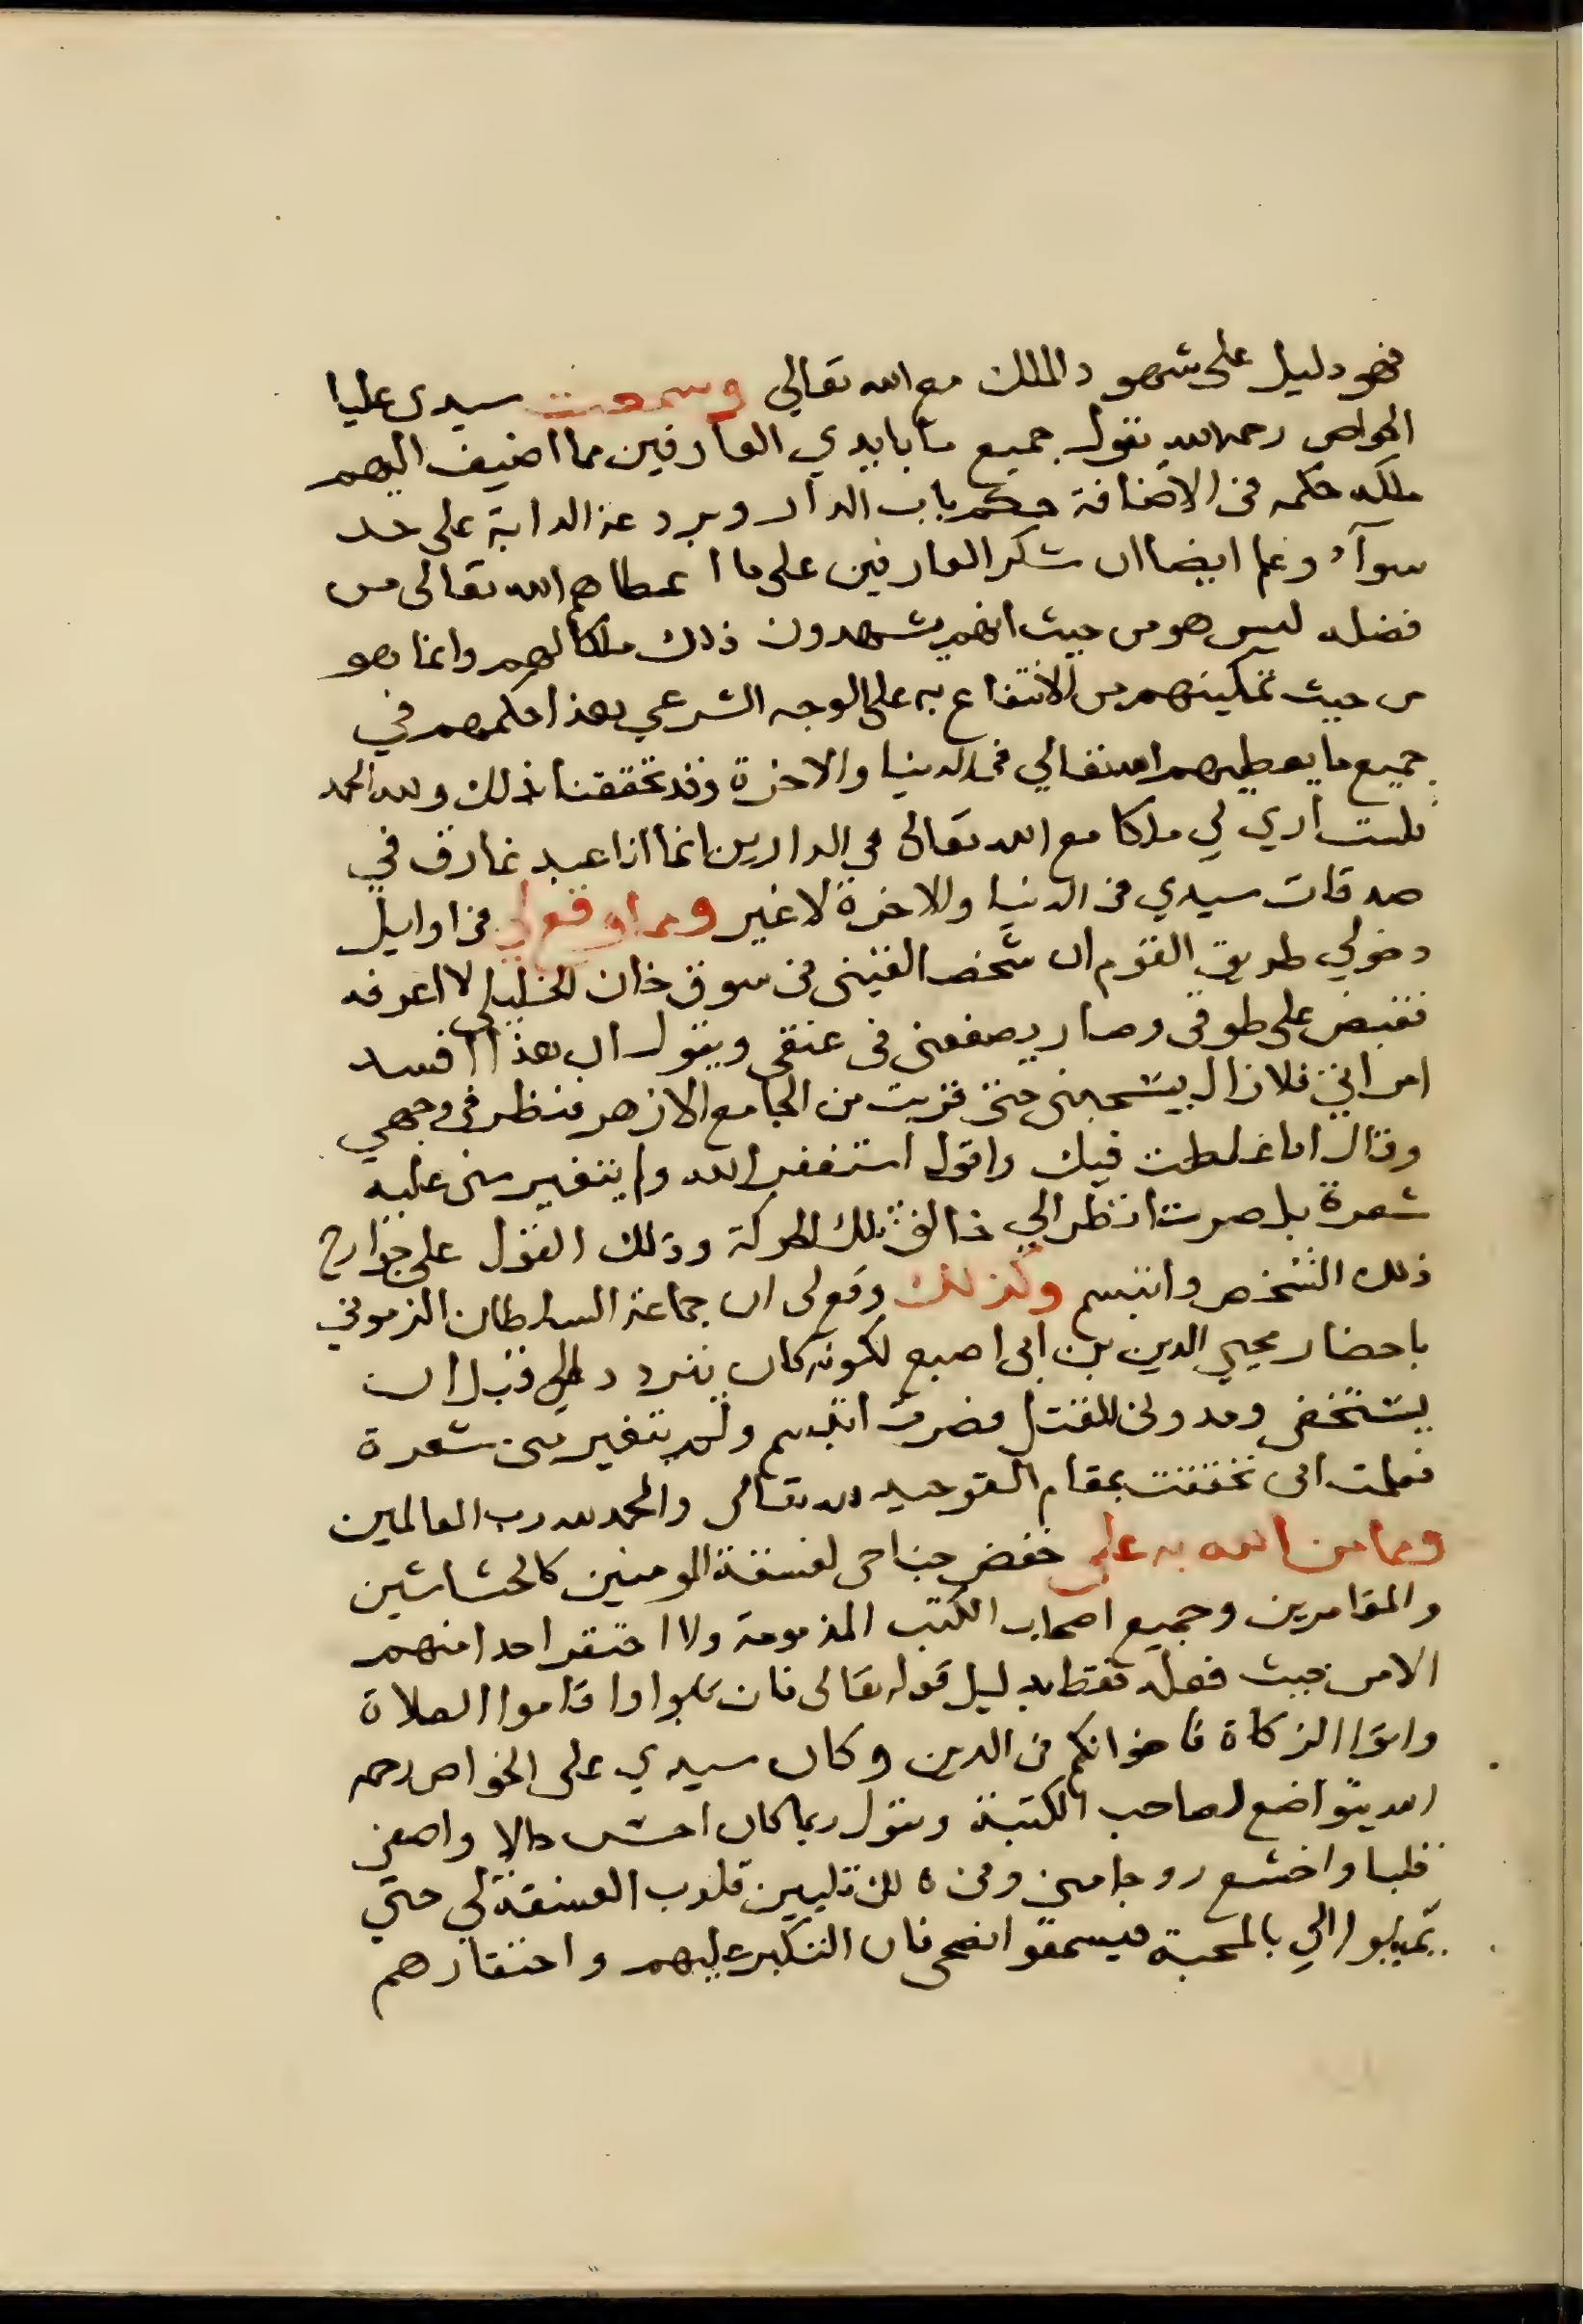 فهو دليل على شهود الملك مع الله تعالى وسمعت سيدي عليا
الخواص رحمه الله يقول جميع ما بايدي العارفين مما اضيف اليهم
ملكه حكمه في الاضافة حكم باب الدار وبردعة الدابة على حد
سوآء وعلم ايضا ان شكر العارفين على ما اعطاهم الله تعالى من
فضله ليس هو من حيث انهم يشهدون ذلك ملكا لهم وانما هو
من حيث تمكينهم من الانتفاع به على الوجه الشرعي هذا حكمهم في
جميع ما يعطيهم الله تعالي في الدنيا والاخرة وقد تحققنا بذلك ولله الحمد
فلست اري لي ملكا مع الله تعالى في الدارين انما انا عبد غارق في
صدقات سيدي في الدنيا والاخرة لا غير ومما وقع لي في اوايل
دخولي طريق القوم ان شخصا لقيني في سوق خان الخليلي لا اعرفه
فقبض على طوقي وصار يصفعني في عنقي ويقول ان هذا افسد
امراتي فلا زال يسحبني حتى قربت من الجامع الازهر فنظر في وجهي
وقال انا غلطت فيك واقول استغفر الله ولم يتغير مني عليه
شعرة بل صرت انظر الي خالق تلك الحركة وذلك القول على جوارح
ذلك الشخص واتبسم وكذلك وقع لي ان جماعة السلطان الزموني
باحضار محيي الدين بن ابي اصبع لكونه كان يتردد الي قبل ان
يستخفي ومدوني للقتل فصرت اتبسم ولم يتغير مني شعرة
فعلمت اني تحققت بمقام التوحيد لله تعالى والحمد لله رب العالمين
ومما من الله به علي خفض جناحي لفسقة المومنين كالحشاشين
والمقامرين وجميع اصحاب الكتب المذمومة ولا احتقر احدا منهم
الا من حيث فعله فقط بدليل قوله تعالى فان تابوا واقاموا الصلاة
واتوا الزكاة فاخوانكم في الدين وكان سيدي على الخواص رحمه
الله يتواضع لصاحب الكتبة ويقول ربما كان احسن حالا واصفي
قلبا واخشع روحا مني ومن تليين قلوب الفسقة لي حتي
يميلوا الي بالمحبة فيسمعوا نصحي فان التكبر عليهم واحتقارهم